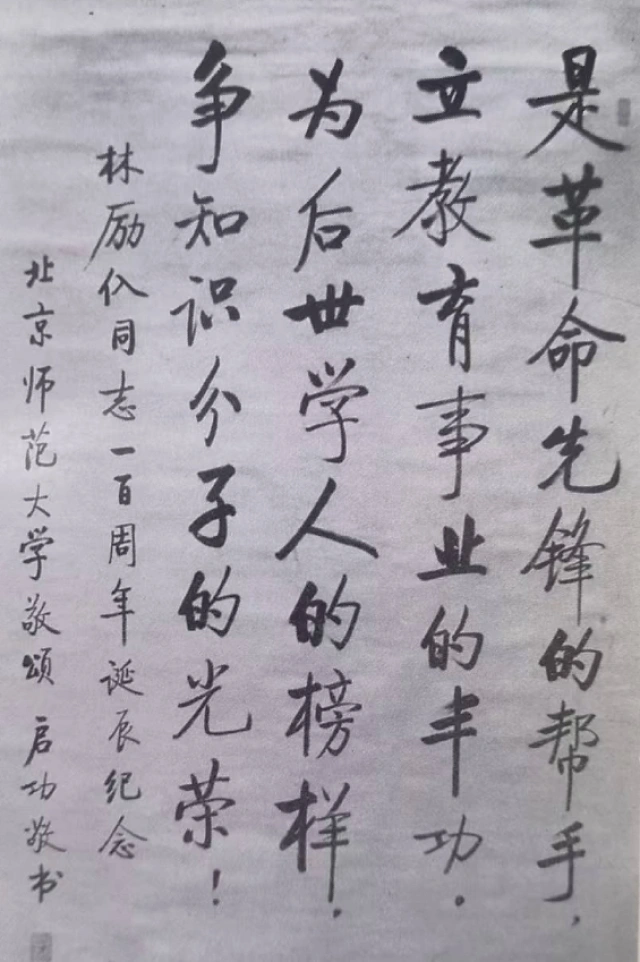 是革命先锋的帮手，
立教育事业的丰功．
为后世学人的榜样．
争知识分子的光荣！
林励仈同志一百周年诞辰纪念
北京师范大学敬颂 启功敬书